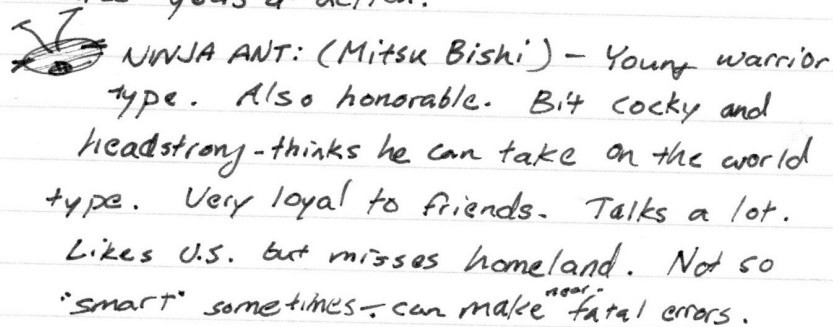 NINJA ANT: (Mitsu Bishi) - Young warrior
type. Also honorable. Bit cocky and
headstrong - thinks he can take on the world
type. Very loyal to friends. Talks a lot.
Likes U.S. but misses homeland. Not so
"smart" sometimes - can make near-fatal errors.